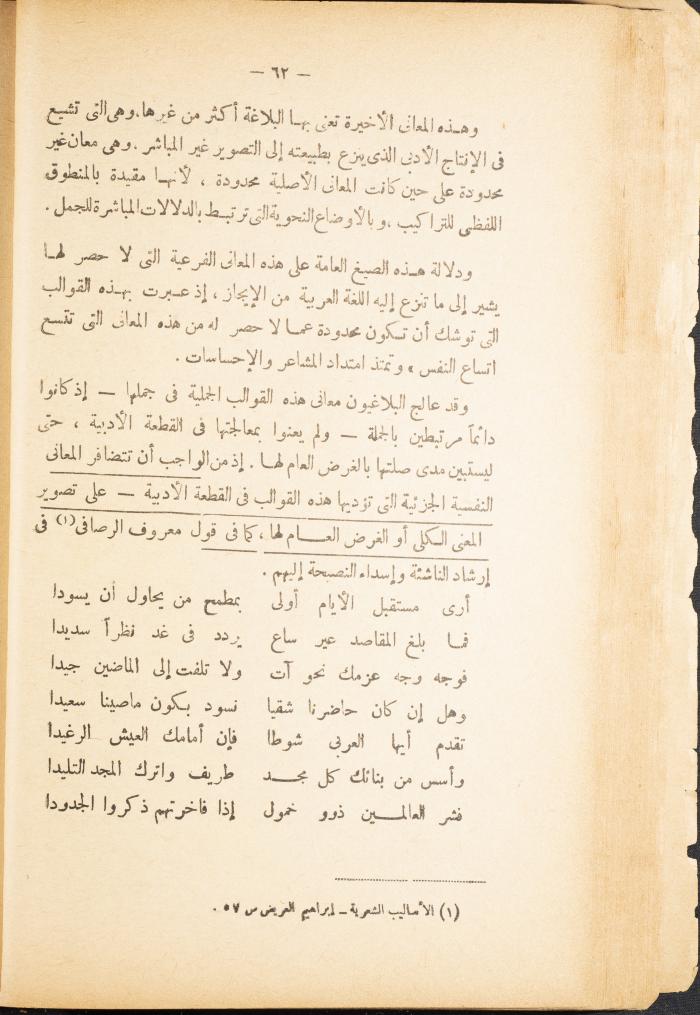 — ٦٢ —
وهـذه المعانى الأخيرة تعنى بهـا البلاغة أكثر من غيرها، وهى التى تشيع
فى الإنتاج الأدبى الذى ينزع بطبيعته إلى التصوير غير المباشر. وهى معان غير
محدودة على حين كانت المعانى الأصلية محدودة ، لأنهـا مقيدة بالمنطوق
اللفظى للتراكيب ، وبالأوضاع النحوية التى ترتبـط بالدلالات المباشرة للجمل .
ودلالة هـذه الصيغ العامة على هذه المعانى الفرعية التى لا حصر لهـا
يشير إلى ما تنزع إليه اللغة العربية من الإيجاز ، إذ عـبرت بهـذه القوالب
التى توشك أن تـكون محدودة عمـا لا حصر له من هذه المعانى التى تتسع
اتساع النفس ، وتمتد امتداد المشاعر والإحساسات .
وقد عالج البلاغيون معانى هذه القوالب الجملية فى جملها — إذ كانوا
دائماً مرتبطين بالجملة — ولم يعنوا بمعالجتها فى القطعة الأدبية ، حتى
ليستبين مدى صلتها بالغرض العام لهـا . إذ من الواجب أن تتضافر المعانى
النفسية الجزئية التى تؤديها هذه القوالب فى القطعة الأدبية — على تصوير
المعنى الـكلى أو الغرض العـــام لها ، كما فى قول معروف الرصافى(١) فى
إرشاد الناشئة وإسداء النصيحة إليهم .
أرى مستقبل الأيام أولى بمطمح من يحاول أن يسودا
فمـا بلغ المقاصد غير ساع يردد فى غد نظراً سديدا
فوجه وجه عزمك نحو آت ولا تلفت إلى الماضين جيدا
وهل إن كان حاضرنا شقيا نسود بـكون ماضينا سعيدا
تقدم أيها العربى شوطا فإن أمامك العيش الرغيدا
وأسس من بنائك كل مجـد طريف واترك المجد التليدا
فشر العالمـــين ذوو خمول إذا فاخرتهم ذكروا الجدودا
(١) الأساليب الشعرية ــ إبراهيم العريض ص ٥٧ .